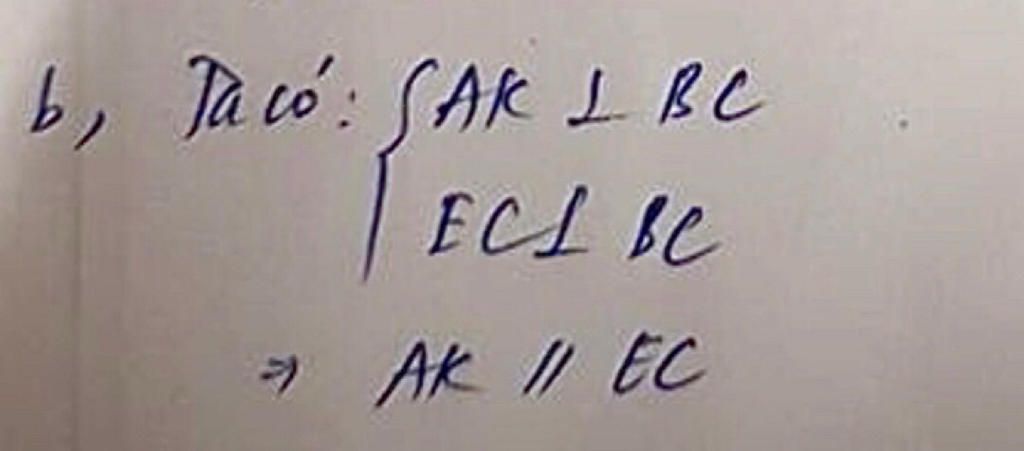 b, Ta có: { AK ⊥ BC
EC ⊥ BC
⇒ AK // EC